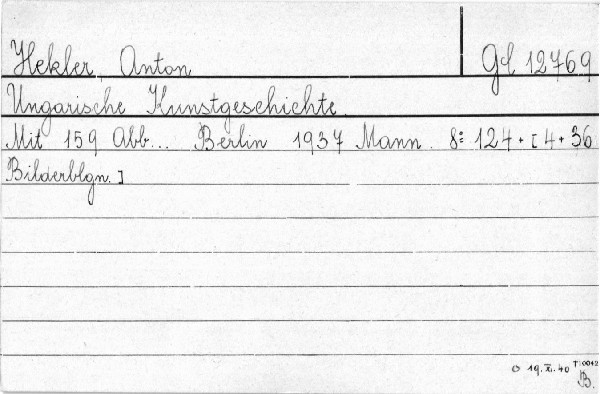 Hekler Anton Gd 12769
Ungarische Kunstgeschichte.
Mit 159 Abb... Berlin 1937 Mann. 8: 124 + [4 + 36
Bilderblgn.]
19. XI. 40 T 0042
B.